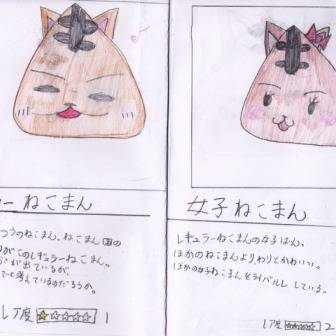 ーねこまん
つうのねこまん。ねこまん国の
がこのレギュラーねこまん。
が出ているが、
考えているのだろうか。
レア度 ★☆☆☆☆ 1
女子ねこまん
レギュラーねこまんの女子はん。
ほかのねこまんよりわりとかわいい。
ほかの女子ねこまんをライバルしている。
レア度